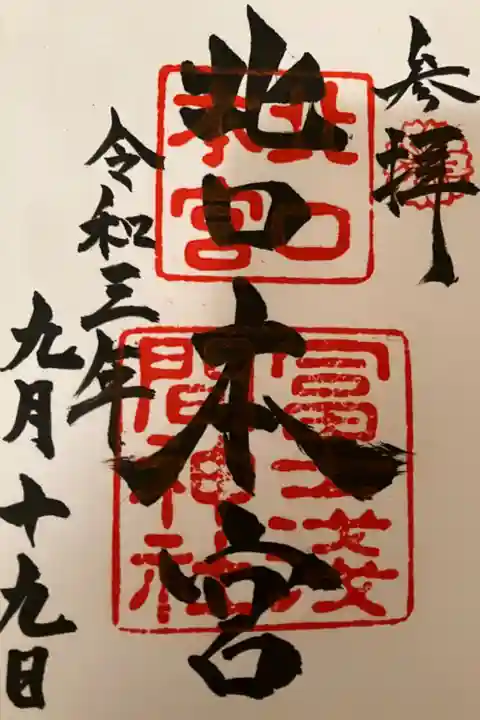 参拝
北口本宮
北口本宮
冨士浅間神社
令和三年
九月十九日